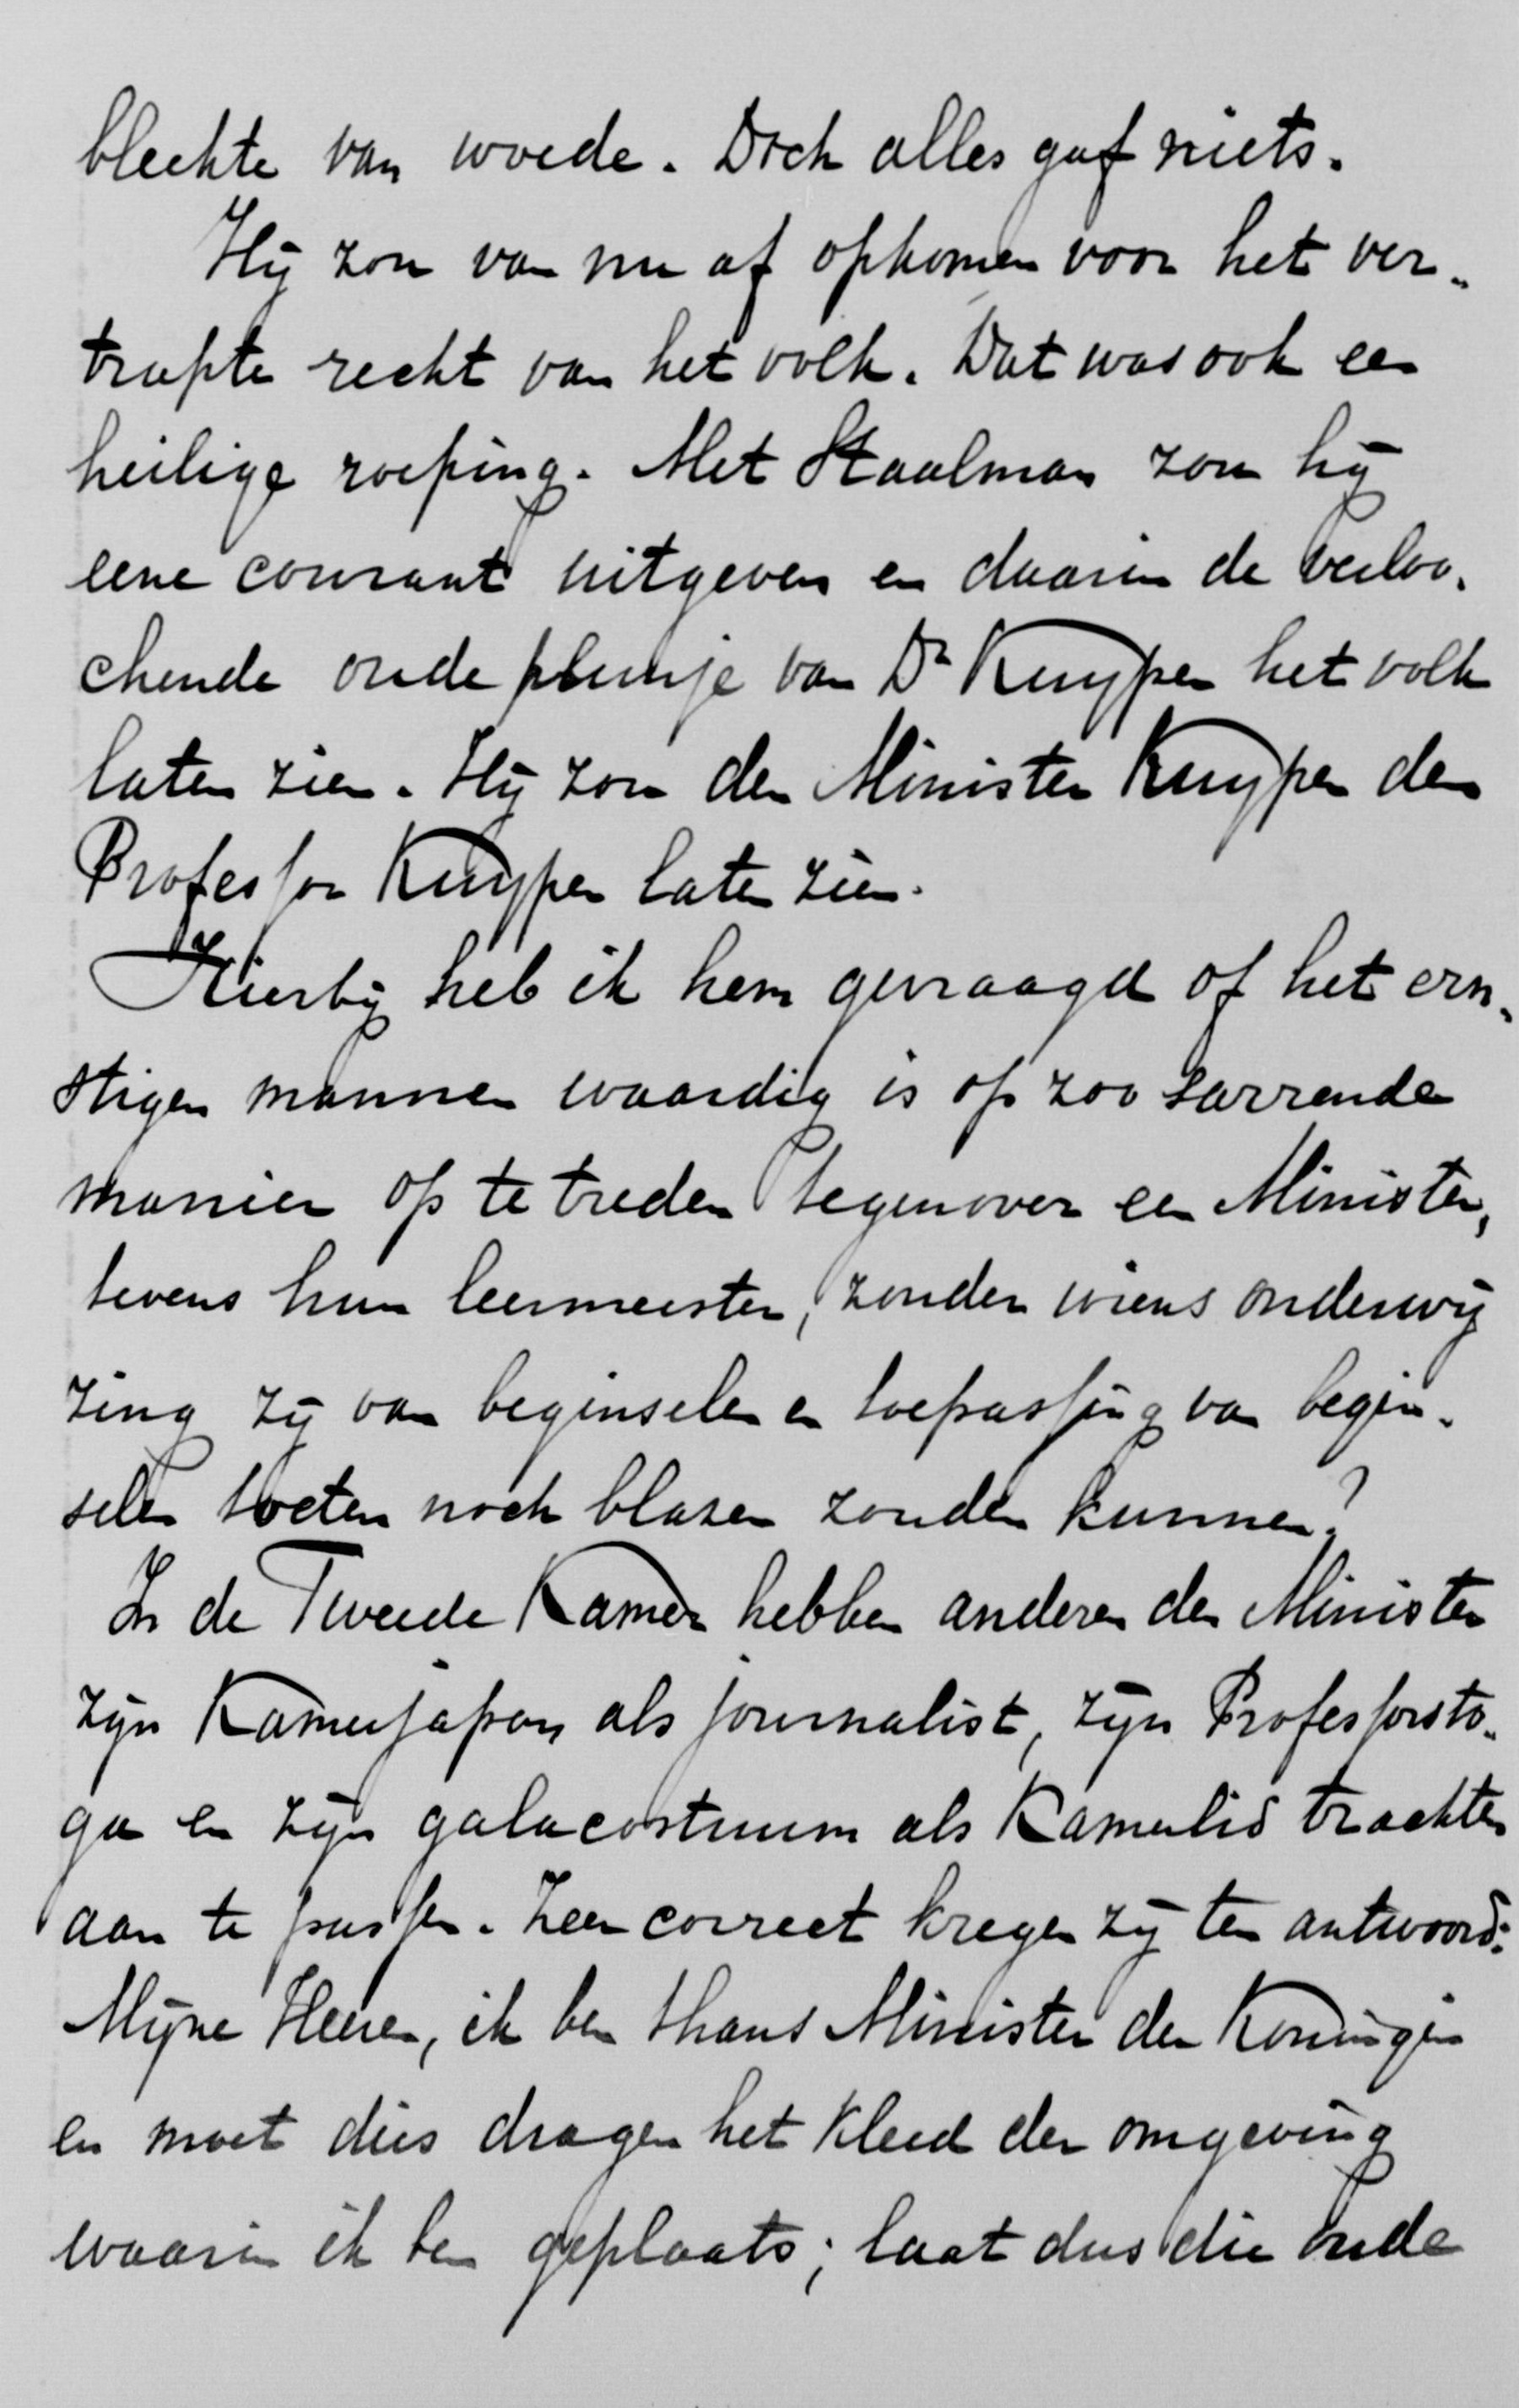 bleekte van woede. Doch alles gaf niets.
Hij zou van nu af opkomen voor het ver-
trapte recht van het volk. Dat was ook een
heilige roeping. Met Staalman zou hij
eene courant uitgeven en daarin de verloo-
chende oude plunje van Dr Kuyper het volk
laten zien. Hij zou den Minister Kuyper den
Professor Kuyper laten zien.
Hierbij heb ik hem gevraagd of het ern-
stigen mannen waardig is op zoo sarrende
manier op te treden tegenover een Minister,
tevens hun leermeester, zonder wiens onderwij
zing zij van beginselen en toepassing van begin-
selen toeten noch blazen zouden kunnen?
In de Tweede Kamer hebben anderen den Minister
zijn Kamerjapon als journalist, zijn Professorsto-
ga en zijn galacostuum als Kamerlid trachten
aan te passen. Zeer correct kregen zij ten antwoord:
Mijne Heeren, ik ben thans Minister der Koningin
en moet dus dragen het kleed der omgeving
waarin ik ben geplaats; laat dus die oude